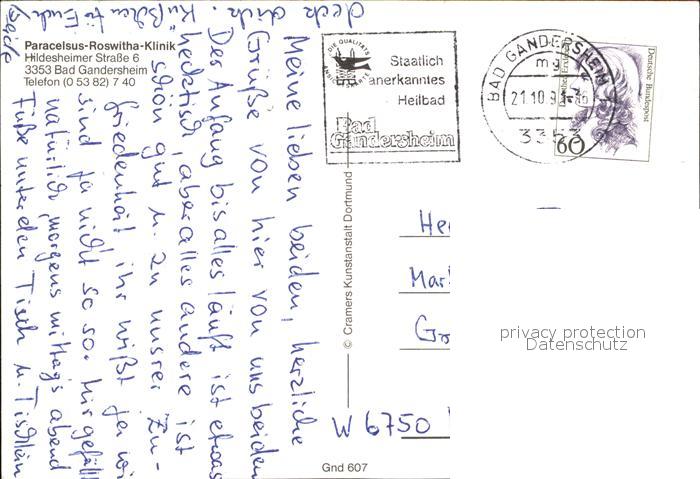 Paracelsus-Roswitha-Klinik
Hildesheimer Straße 6
3353 Bad Gandersheim
Telefon (0 53 82) 7 40
Meine lieben beiden, herzliche
Grüße von hier von uns beiden
Der Anfang bis alles läuft ist etwas
hecktisch, aber alles andere ist
schön gut u. zu unsrer Zu-
friedenheit ihr wißt ja wi
sind ja nicht so so. hir gefäll
natürlich, morgens mittags abend
Füße unter den Tisch u. Tischlein
deck dich.
Küßchen Euch
beide
DIE QUALITÄT
Staatlich
anerkanntes
Heilbad
Bad
Gandersheim
BAD GANDERSHEIM
mg
21.10.9
3353
Deutsche Bundespost
60
© Cramers Kunstanstalt Dortmund
He
Mar
Gr
W 6750
Gnd 607
privacy protection
Datenschutz